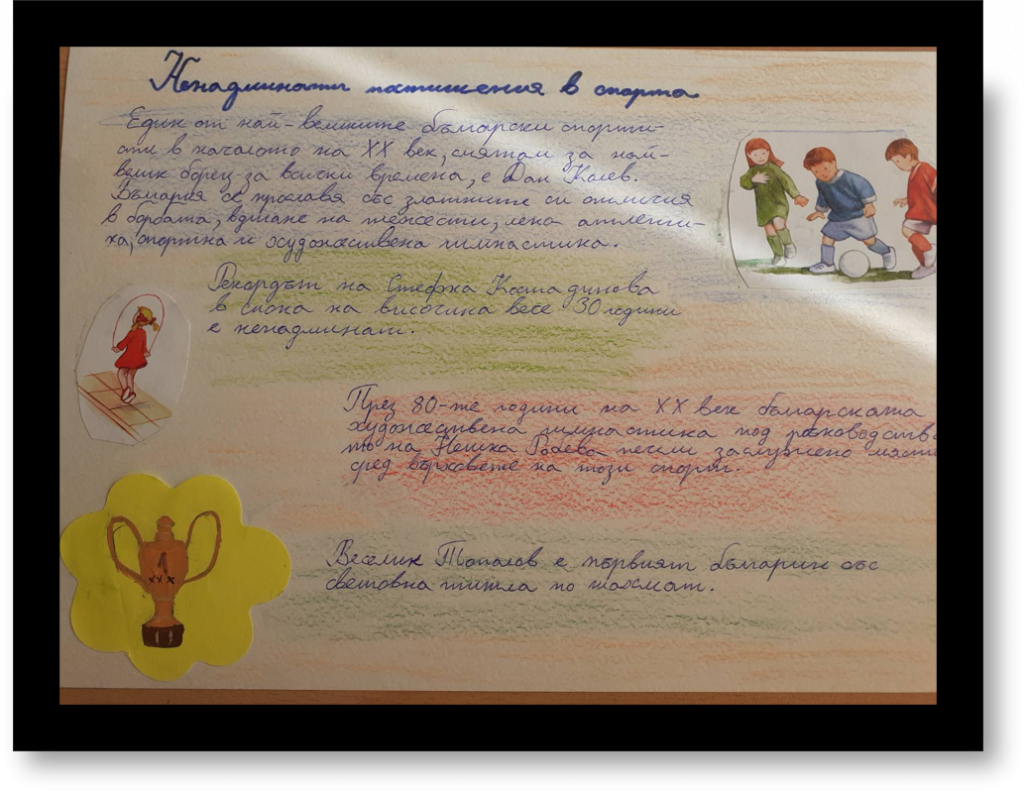 Ненадминати постижения в спорта
Един от най-великите български спорти-
сти в началото на XX век, смятан за най-
велик борец за всички времена, е Дан Колев.
България се прославя със златните си отличия
в борбата, вдигане на тежести, лека атлети-
ка, спортна и художествена гимнастика.
Рекордът на Стефка Костадинова
в скока на височина вече 30 години
е ненадминат.
През 80-те години на XX век българската
художествена гимнастика под ръководств
то на Нешка Робева печели заслужено място
сред върховете на този спорт.
Веселин Топалов е първият българин със
световна титла по шахмат.
1
xxx